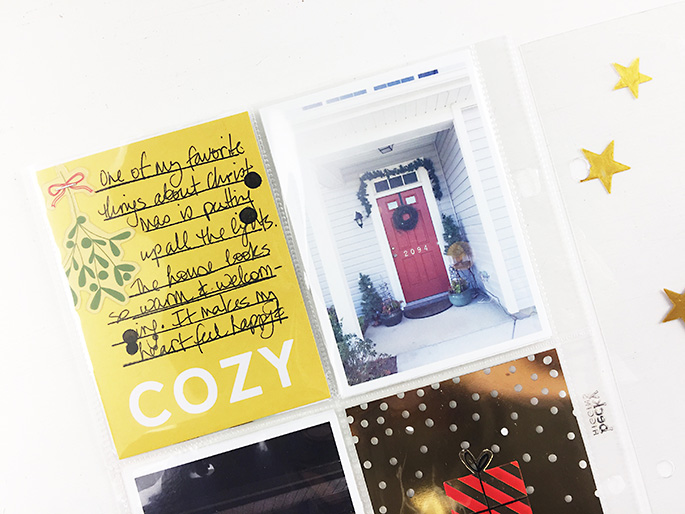 One of my favorite
things about Christ
mas is putting
up all the lights.
The house looks
so warm & welcom-
ing. It makes my
heart feel happy &
COZY
2094